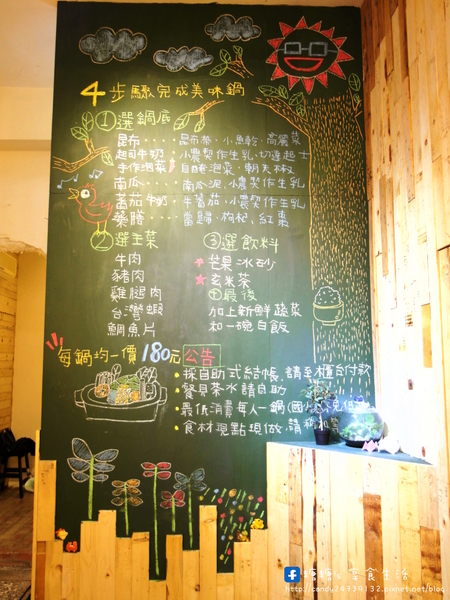 4步驟完成美味鍋
①選鍋底
昆布····昆布帶·小魚乾·高麗菜
起司牛奶··小農契作生乳·切達起士
手作泡菜··自醃泡菜·朝天椒
南瓜····南瓜泥·小農契作生乳
蕃茄牛奶·牛蕃茄·小農契作生乳
藥膳····當歸·枸杞·紅棗
②選主菜
牛肉
豬肉
雞腿肉
台灣蝦
鯛魚片
③選飲料
★芒果冰砂
★玄米茶
④最後
加上新鮮蔬菜
和一碗白飯
每鍋均一價180元
公告
·採自助式結帳,請至櫃台付款
·餐具茶水請自助
·最低消費每人一鍋(國小
·食材現點現做·請稍
糖糖's 享食生活
http://candy24934132.pixnet.net/blog